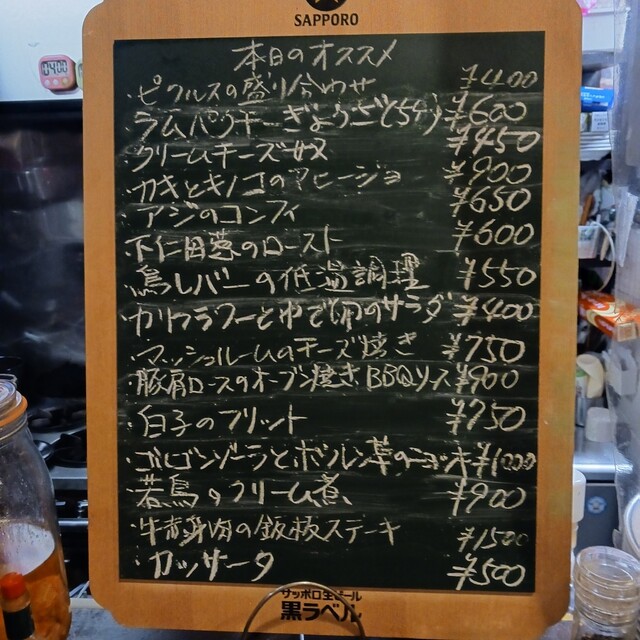 SAPPORO
04:00
本日のオススメ
・ピクルスの盛り合わせ ¥400
・ラムパクチーぎょうざ(5ケ) ¥600
・クリームチーズ奴 ¥450
・カキとキノコのアヒージョ ¥900
・アジのコンフィ ¥650
・下仁田葱のロースト ¥600
・鳥レバーの低温調理 ¥550
・カリフラワーとゆで卵のサラダ ¥400
・マッシュルームのチーズ焼き ¥750
・豚肩ロースのオーブン焼きBBQソース ¥900
・白子のフリット ¥750
・ゴルゴンゾーラとホウレン草のニョッキ ¥1000
・若鳥のクリーム煮 ¥900
・牛赤身肉の鉄板ステーキ ¥1500
・カッサータ ¥500
サッポロ生ビール
黒ラベル